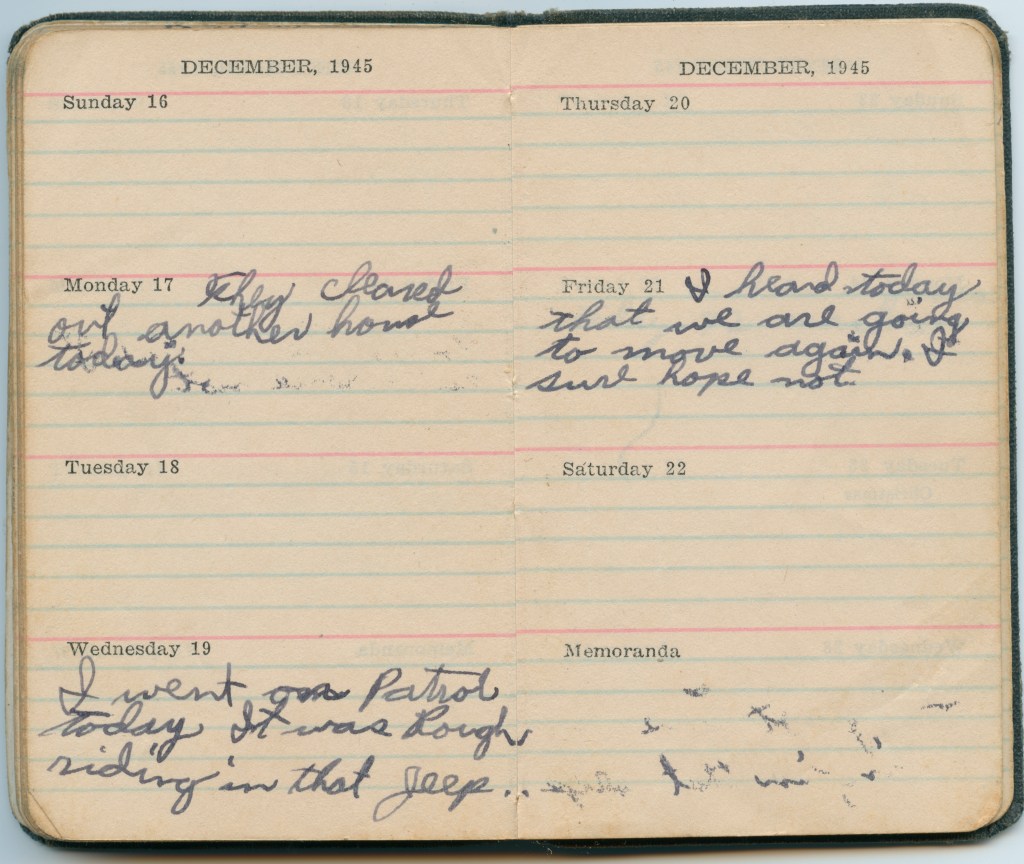 DECEMBER, 1945
Sunday 16
Monday 17 They cleared
out another house
today.
Tuesday 18
Wednesday 19
I went on Patrol
today It was Rough
riding in that Jeep..
DECEMBER, 1945
Thursday 20
Friday 21 I heard today
that we are going
to move again. I
sure hope not.
Saturday 22
Memoranda